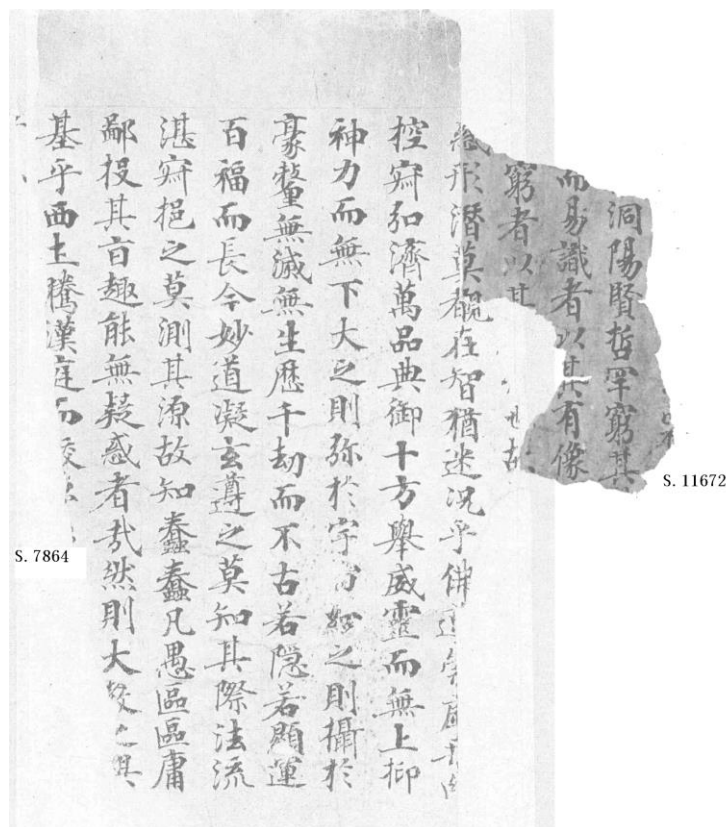 洞陽賢哲罕窮其
而易識者以其有像
窮者以其
也故
形潛莫覩在智猶迷況乎佛道崇虛
控寂弘濟萬品典御十方舉威靈而無上抑
神力而無下大之則弥於宇宙細之則攝於
豪氂無滅無生歷千劫而不古若隱若顯運
百福而長今妙道凝玄遵之莫知其際法流
湛寂挹之莫測其源故知蠢蠢凡愚區區庸
鄙投其旨趣能無疑惑者哉然則大教之興
基乎西土騰漢庭而皎
S. 11672
S. 7864